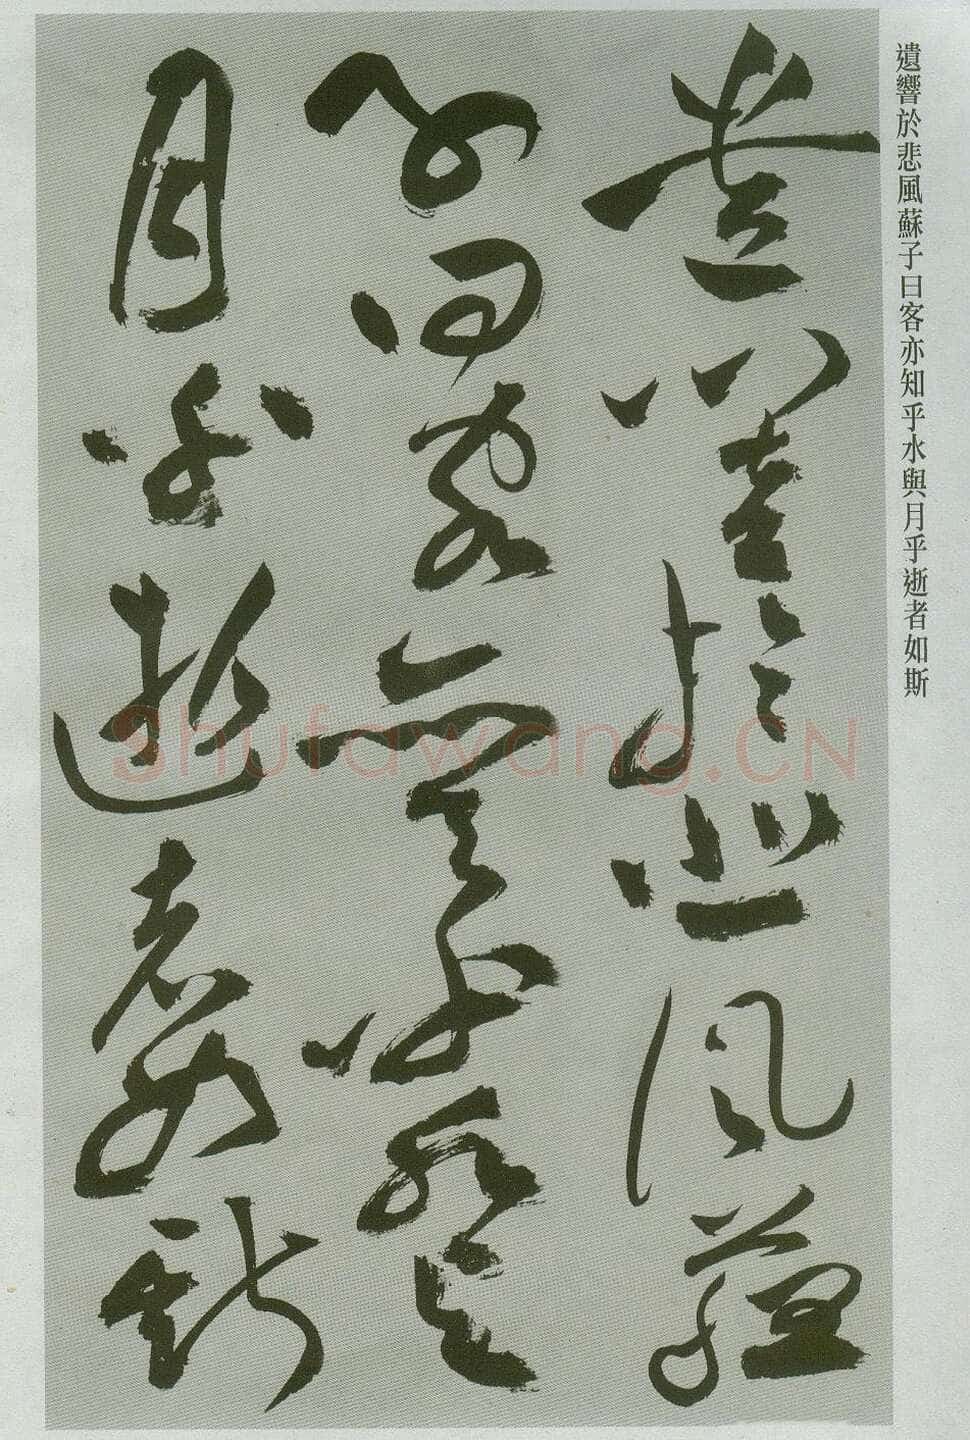 遺響於悲風蘇子曰客亦知乎水與月乎逝者如斯
遺響於悲風蘇
子曰客亦知乎水與
月乎逝者如斯
Shufawang.CN